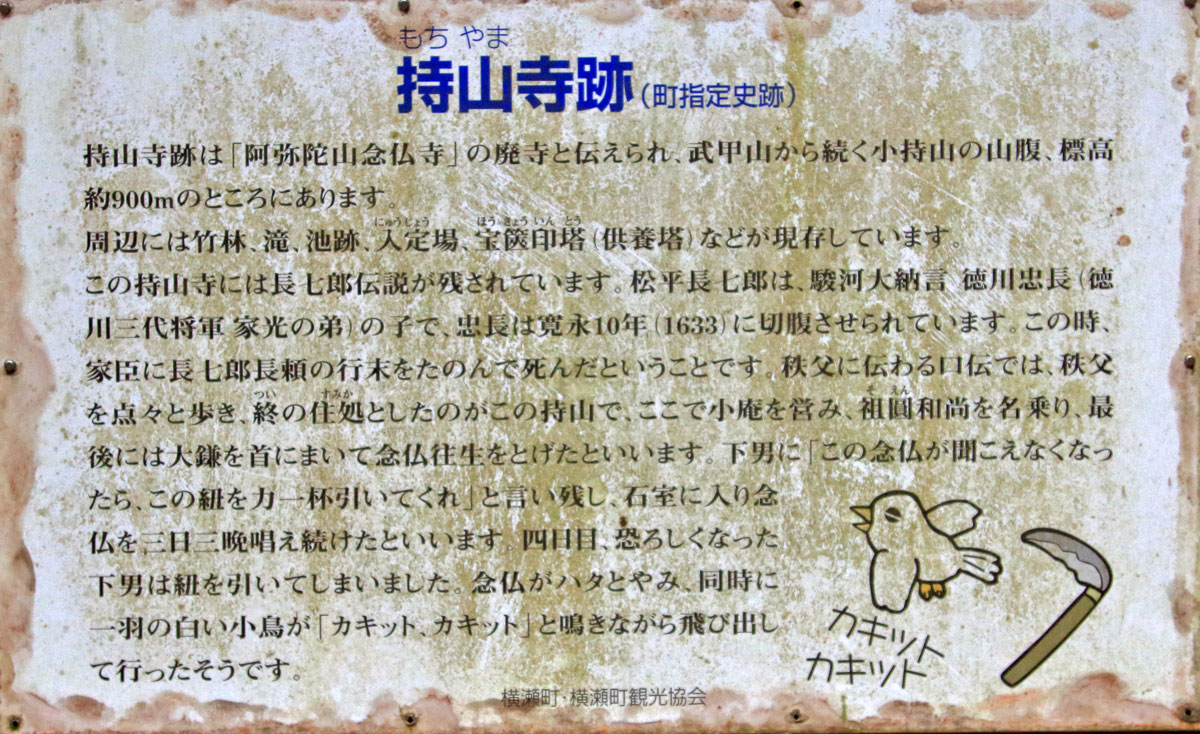 もち やま
持山寺跡（町指定史跡）
持山寺跡は「阿弥陀山念仏寺」の廃寺と伝えられ、武甲山から続く小持山の山腹、標高
約900mのところにあります。
にゅうじょう ほう きょう いん とう
周辺には竹林、滝、池跡、入定場、宝篋印塔（供養塔）などが現存しています。
この持山寺には長七郎伝説が残されています。松平長七郎は、駿河大納言 徳川忠長（徳
川三代将軍 家光の弟）の子で、忠長は寛永10年（1633）に切腹させられています。この時、
家臣に長七郎長頼の行末をたのんで死んだということです。秩父に伝わる口伝では、秩父
つい すみか そ えん
を点々と歩き、終の住処としたのがこの持山で、ここで小庵を営み、祖圓和尚を名乗り、最
後には大鎌を首にまいて念仏往生をとげたといいます。下男に「この念仏が聞こえなくなっ
たら、この紐を力一杯引いてくれ」と言い残し、石室に入り念
仏を三日三晩唱え続けたといいます。四日目、恐ろしくなった
下男は紐を引いてしまいました。念仏がハタとやみ、同時に
一羽の白い小鳥が「カキット、カキット」と鳴きながら飛び出し
て行ったそうです。
カキット
カキット
横瀬町・横瀬町観光協会